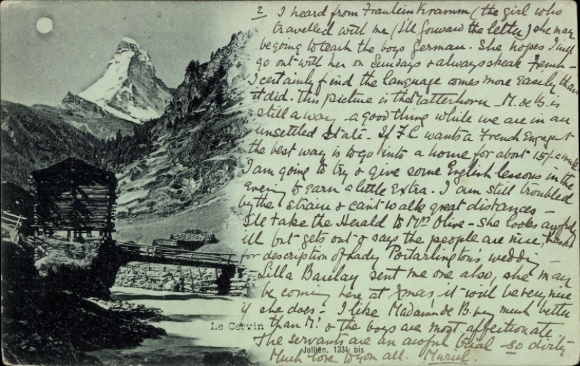 2 I heard from Fraulein Kramm (the girl who
travelled with me (I'll forward the letter) she may
be going to teach the boys German. She hopes I will
go out with her on Sundays & always speak French -
I certainly find the language comes more easily than
it did. This picture is the Matterhorn - M. de B. is
still away - a good thing while we are in an
unsettled state. If F.C. wants a French
the best way is to go into a home for about 15/- a week
I am going to try & give some English lessons in the
evening to earn a little extra. I am still troubled
by the strain & can't walk great distances -
I'll take the Herald to Mrs Olive - She looks awfully
ill but gets out & says the people are nice,
for description of Lady Portarlington's wedding
Lilla Barclay sent me one also, she may
be coming here at Xmas it will be very nice
if she does - I like Madame de B. very much better
than M. & the boys are most affectionate
The servants are an awful trial - so dirty
Much love to you all. Muriel.
Le Cervin
Jullien. 1334 bis